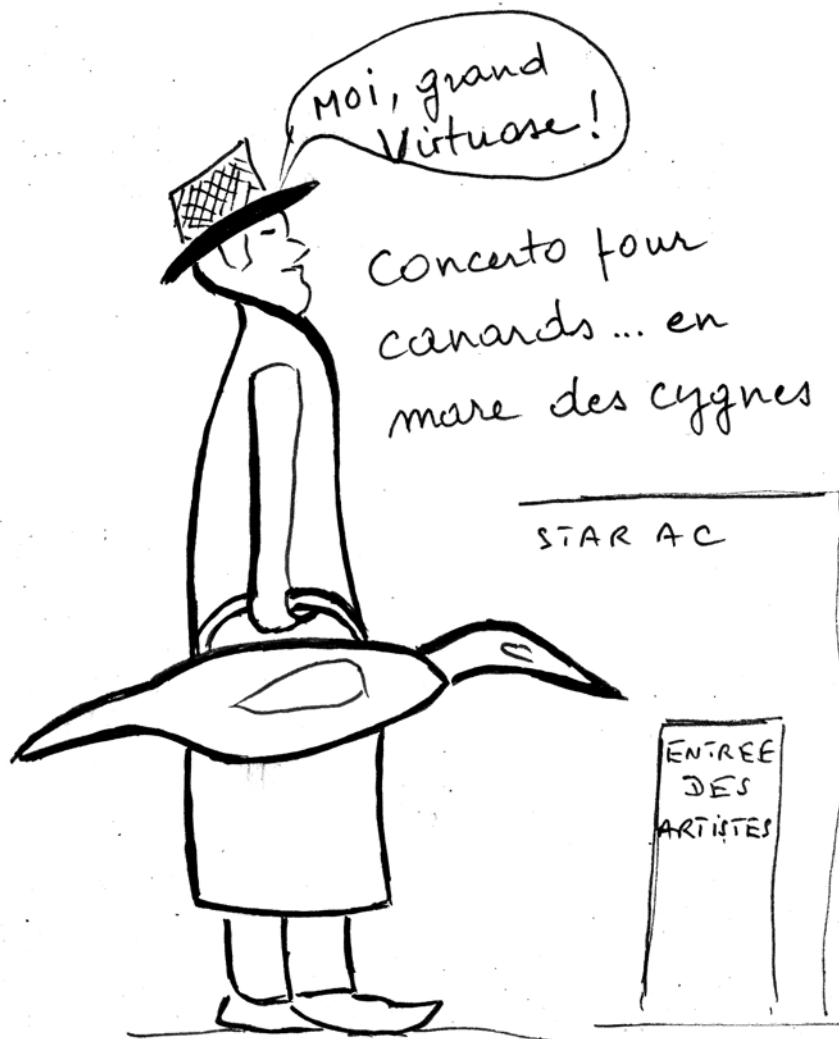 Moi, grand
Virtuose!
Concerto pour
canards... en
mare des cygnes
STAR AC
ENTREE
DES
ARTISTES